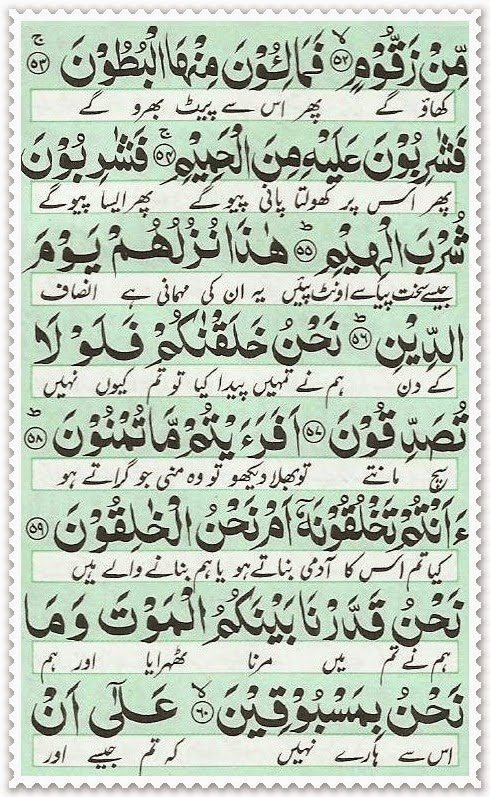 مِّنْ زَقُّوْمٍ ﴿۵۲﴾ فَمَالِـُٔوْنَ مِنْهَا الْبُطُوْنَ ﴿۵۳﴾
کھاؤ گے پھر اس سے پیٹ بھرو گے
فَشٰرِبُوْنَ عَلَيْهِ مِنَ الْحَمِيْمِ ﴿۵۴﴾ فَشٰرِبُوْنَ
پھر اس پر کھولتا پانی پیو گے پھر ایسا پیو گے
شُرْبَ الْهِيْمِ ﴿۵۵﴾ هٰذَا نُزُلُهُمْ يَوْمَ
جیسے سخت پیاسے اونٹ پئیں یہ ان کی مہمانی ہے انصاف
الدِّيْنِ ﴿۵۶﴾ نَحْنُ خَلَقْنٰكُمْ فَلَوْ لَا
کے دن ہم نے تمہیں پیدا کیا تو تم کیوں نہیں
تُصَدِّقُوْنَ ﴿۵۷﴾ اَفَرَءَيْتُمْ مَّا تُمْنُوْنَ ﴿۵۸﴾
سچ مانتے تو بھلا دیکھو تو وہ منی جو گراتے ہو
ءَاَنْتُمْ تَخْلُقُوْنَهٗٓ اَمْ نَحْنُ الْخٰلِقُوْنَ ﴿۵۹﴾
کیا تم اس کا آدمی بناتے ہو یا ہم بنانے والے ہیں
نَحْنُ قَدَّرْنَا بَيْنَكُمُ الْمَوْتَ وَمَا
ہم نے تم میں مرنا ٹھہرایا اور ہم
نَحْنُ بِمَسْبُوْقِيْنَ ﴿۶۰﴾ عَلٰٓى اَنْ
اس سے ہارے نہیں کہ تم جیسے اور